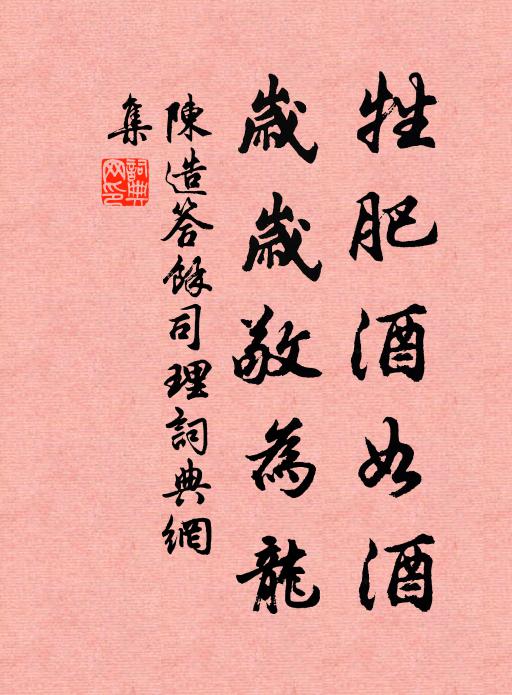 牲肥酒如酒
歲歲敬為龍
陳造答餘司理詞典網
集
詞典網印